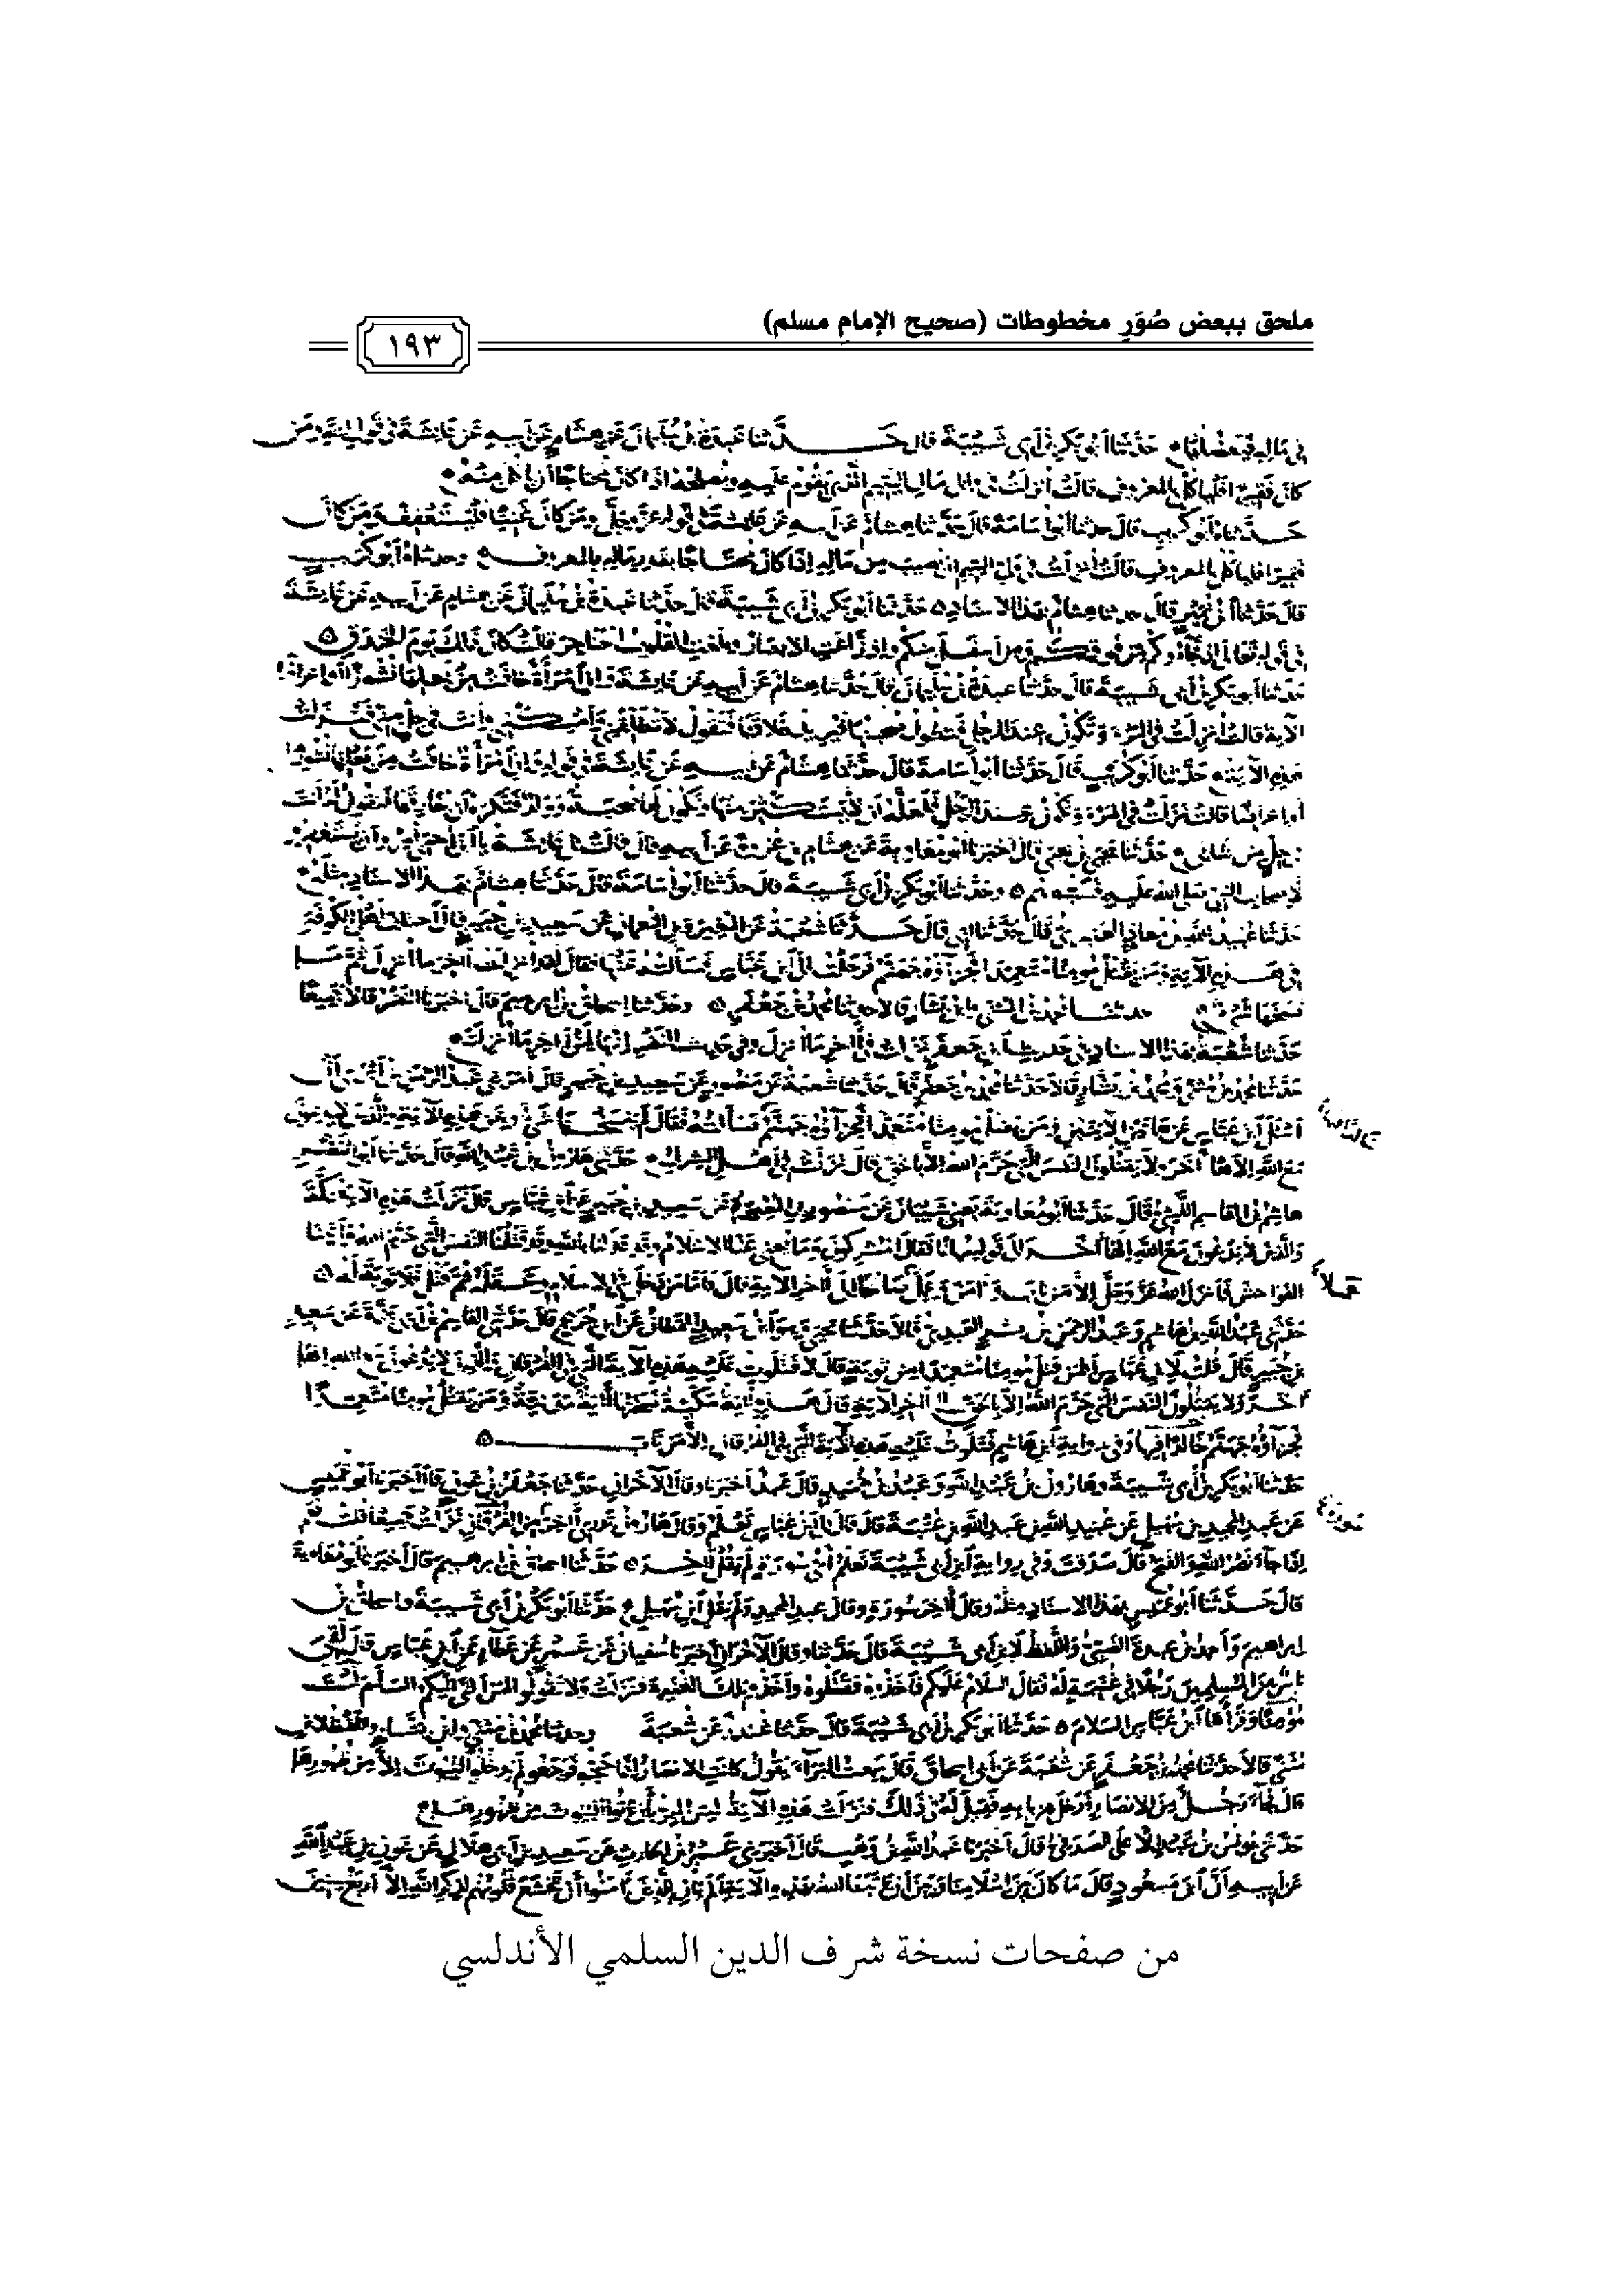 ملحق ببعض صُوَرِ مخطوطات (صحيح الإمامِ مسلم)
١٩٣
في مَالِهِ حَدَّثَنَا أَبُو بَكْرِ بْنُ أَبِي شَيْبَةَ قال حَدَّثَنا عَبْدَةُ بْنُ سُلَيْمَانَ عَنْ هِشَامٍ عَنْ أَبِيهِ عَنْ عَائِشَةَ فِي قَوْلِهِ وَمَنْ
كَانَ فَقِيرًا فَلْيَأْكُلْ بِالْمَعْرُوفِ قَالَتْ أُنْزِلَتْ فِي وَالِي مَالِ الْيَتِيمِ الَّذِي يَقُومُ عَلَيْهِ وَيُصْلِحُهُ اذَا كَانَ مُحْتَاجًا أَنْ يَأْكُلَ مِنْهُ
حَدَّثَنَا أَبُو كُرَيْبٍ قَالَ حدثنا أَبُو أُسَامَةَ قَالَ حَدَّثَنا هِشَامٌ عَنْ أَبِيهِ عَنْ عَائِشَةَ فِي قَوْلِهِ عَزَّ وَجَلَّ وَمَنْ كَانَ غَنِيًّا فَلْيَسْتَعْفِفْ وَمَنْ كَانَ
فَقِيرًا فَلْيَأْكُلْ بِالْمَعْرُوفِ قَالَتْ أُنْزِلَتْ فِي وَلِيِّ الْيَتِيمِ أَنْ يُصِيبَ مِنْ مَالِهِ إِذَا كَانَ مُحْتَاجًا بِقَدْرِ مَالِهِ بِالْمَعْرُوفِ وحدثناه أَبُو كُرَيْبٍ
قَالَ حَدَّثَنَا ابْنُ نُمَيْرٍ قَالَ حدثنا هِشَامٌ بِهَذَا الاسْنَادِ حَدَّثَنَا أَبُو بَكْرِ بْنُ أَبِي شَيْبَةَ قَالَ حَدَّثَنا عَبْدَةُ بْنُ سُلَيْمَانَ عَنْ هِشَامٍ عَنْ أَبِيهِ عَنْ عَائِشَةَ
فِي قَوْلِهِ تَعَالَى إِذْ جَاءُوكُمْ مِنْ فَوْقِكُمْ وَمِنْ أَسْفَلَ مِنْكُمْ وَإِذْ زَاغَتِ الابْصَارُ وَبَلَغَتِ الْقُلُوبُ الْحَنَاجِرَ قَالَتْ كَانَ ذَلِكَ يَوْمَ الْخَنْدَقِ
حَدَّثَنَا أَبُو بَكْرِ بْنُ أَبِي شَيْبَةَ قَالَ حَدَّثَنا عَبْدَةُ بْنُ سُلَيْمَانَ قَالَ حَدَّثَنا هِشَامٌ عَنْ أَبِيهِ عَنْ عَائِشَةَ وَإِنِ امْرَأَةٌ خَافَتْ مِنْ بَعْلِهَا نُشُوزًا أَوْ إِعْرَاضًا
الآيَةَ قَالَتْ أُنْزِلَتْ فِي الْمَرْأَةِ تَكُونُ عِنْدَ الرَّجُلِ فَتَطُولُ صُحْبَتُهَا فَيُرِيدُ طَلَاقَهَا فَتَقُولُ لَا تُطَلِّقْنِي وَأَمْسِكْنِي وَأَنْتَ فِي حِلٍّ مِنِّي فَنَزَلَتْ
هَذِهِ الآيَةُ حَدَّثَنَا أَبُو كُرَيْبٍ قَالَ حَدَّثَنَا أَبُو أُسَامَةَ قَالَ حَدَّثَنَا هِشَامٌ عَنْ أَبِيهِ عَنْ عَائِشَةَ فِي قَوْلِهِ وَإِنِ امْرَأَةٌ خَافَتْ مِنْ بَعْلِهَا نُشُوزًا
أَوْ إِعْرَاضًا قَالَتْ نَزَلَتْ فِي الْمَرْأَةِ تَكُونُ عِنْدَ الرَّجُلِ فَلَعَلَّهُ أَنْ لَا يَسْتَكْثِرَ مِنْهَا وَتَكُونُ لَهَا صُحْبَةٌ وَوَلَدٌ فَتَكْرَهُ أَنْ يُفَارِقَهَا فَتَقُولُ لَهُ أَنْتَ
فِي حِلٍّ مِنْ شَأْنِي حَدَّثَنَا يَحْيَى بْنُ يَحْيَى قَالَ أَخْبَرَنَا أَبُو مُعَاوِيَةَ عَنْ هِشَامِ بْنِ عُرْوَةَ عَنْ أَبِيهِ قَالَ قَالَتْ لِي عَائِشَةُ يَا ابْنَ أُخْتِي أُمِرُوا أَنْ يَسْتَغْفِرُوا
لِأَصْحَابِ النَّبِيِّ صَلَّى اللهُ عَلَيْهِ فَسَبُّوهُمْ وحَدَّثَنَا أَبُو بَكْرِ بْنُ أَبِي شَيْبَةَ قَالَ حَدَّثَنَا أَبُو أُسَامَةَ قَالَ حَدَّثَنَا هِشَامٌ بِهَذَا الاسْنَادِ مِثْلَهُ
حَدَّثَنَا عُبَيْدُ اللهِ بْنُ مُعَاذٍ الْعَنْبَرِيُّ قَالَ حَدَّثَنَا أَبِي قَالَ حَدَّثَنَا شُعْبَةُ عَنِ الْمُغِيرَةِ بْنِ النُّعْمَانِ عَنْ سَعِيدِ بْنِ جُبَيْرٍ قَالَ اخْتَلَفَ أَهْلُ الْكُوفَةِ
فِي هَذِهِ الآيَةِ وَمَنْ يَقْتُلْ مُؤْمِنًا مُتَعَمِّدًا فَجَزَاؤُهُ جَهَنَّمُ فَرَحَلْتُ إِلَى ابْنِ عَبَّاسٍ فَسَأَلْتُهُ عَنْهَا فَقَالَ لَقَدْ أُنْزِلَتْ آخِرَ مَا أُنْزِلَ ثُمَّ مَا
نَسَخَهَا شَيْءٌ حدثنا مُحَمَّدُ بْنُ الْمُثَنَّى وَابْنُ بَشَّارٍ قَالَا حدثنا مُحَمَّدُ بْنُ جَعْفَرٍ وحَدَّثَنَا إِسْحَاقُ بْنُ إِبْرَاهِيمَ قَالَ أَخْبَرَنَا النَّضْرُ قَالَا جَمِيعًا
حَدَّثَنَا شُعْبَةُ بِهَذَا الاسْنَادِ فِي حَدِيثِ ابْنِ جَعْفَرٍ نَزَلَتْ فِي آخِرِ مَا أُنْزِلَ وَفِي حَدِيثِ النَّضْرِ إِنَّهَا لَمِنْ آخِرِ مَا أُنْزِلَتْ
حَدَّثَنَا مُحَمَّدُ بْنُ مُثَنَّى وَمُحَمَّدُ بْنُ بَشَّارٍ قَالَا حَدَّثَنَا مُحَمَّدُ بْنُ جَعْفَرٍ قَالَ حَدَّثَنَا شُعْبَةُ عَنْ مَنْصُورٍ عَنْ سَعِيدِ بْنِ جُبَيْرٍ قَالَ أَمَرَنِي عَبْدُ الرَّحْمَنِ بْنُ أَبْزَى أَنْ
أَسْأَلَ ابْنَ عَبَّاسٍ عَنْ هَاتَيْنِ الآيَتَيْنِ وَمَنْ يَقْتُلْ مُؤْمِنًا مُتَعَمِّدًا فَجَزَاؤُهُ جَهَنَّمُ فَسَأَلْتُهُ فَقَالَ لَمْ يَنْسَخْهَا شَيْءٌ وَعَنْ هَذِهِ الآيَةِ وَالَّذِينَ لَا يَدْعُونَ
مَعَ اللهِ إِلَهًا آخَرَ وَلَا يَقْتُلُونَ النَّفْسَ الَّتِي حَرَّمَ اللهُ إِلَّا بِالْحَقِّ قَالَ نَزَلَتْ فِي أَهْلِ الشِّرْكِ حَدَّثَنِي هَارُونُ بْنُ عَبْدِ اللهِ قَالَ حَدَّثَنَا أَبُو النَّضْرِ
هَاشِمُ بْنُ الْقَاسِمِ اللَّيْثِيُّ قَالَ حَدَّثَنَا أَبُو مُعَاوِيَةَ يَعْنِي شَيْبَانَ عَنْ مَنْصُورِ بْنِ الْمُعْتَمِرِ عَنْ سَعِيدِ بْنِ جُبَيْرٍ عَنِ ابْنِ عَبَّاسٍ قَالَ نَزَلَتْ هَذِهِ الآيَةُ بِمَكَّةَ
وَالَّذِينَ لَا يَدْعُونَ مَعَ اللهِ إِلَهًا آخَرَ إِلَى قَوْلِهِ مُهَانًا فَقَالَ الْمُشْرِكُونَ وَمَا يُغْنِي عَنَّا الاسْلَامُ وَقَدْ عَدَلْنَا بِاللهِ وَقَدْ قَتَلْنَا النَّفْسَ الَّتِي حَرَّمَ اللهُ وَأَتَيْنَا
الْفَوَاحِشَ فَأَنْزَلَ اللهُ عَزَّ وَجَلَّ إِلَّا مَنْ تَابَ وَآمَنَ وَعَمِلَ عَمَلًا صَالِحًا إِلَى آخِرِ الآيَةِ قَالَ فَأَمَّا مَنْ دَخَلَ فِي الاسْلَامِ وَعَقَلَهُ ثُمَّ قَتَلَ فَلَا تَوْبَةَ لَهُ
حَدَّثَنِي عَبْدُ اللهِ بْنُ هَاشِمٍ وَعَبْدُ الرَّحْمَنِ بْنُ بِشْرٍ الْعَبْدِيُّ قَالَا حَدَّثَنَا يَحْيَى وَهُوَ ابْنُ سَعِيدٍ الْقَطَّانُ عَنِ ابْنِ جُرَيْجٍ قَالَ حَدَّثَنِي الْقَاسِمُ بْنُ أَبِي بَزَّةَ عَنْ سَعِيدِ
بْنِ جُبَيْرٍ قَالَ قُلْتُ لِابْنِ عَبَّاسٍ أَلِمَنْ قَتَلَ مُؤْمِنًا مُتَعَمِّدًا مِنْ تَوْبَةٍ قَالَ لَا فَتَلَوْتُ عَلَيْهِ هَذِهِ الآيَةَ الَّتِي فِي الْفُرْقَانِ وَالَّذِينَ لَا يَدْعُونَ مَعَ اللهِ إِلَهًا
آخَرَ وَلَا يَقْتُلُونَ النَّفْسَ الَّتِي حَرَّمَ اللهُ إِلَّا بِالْحَقِّ إِلَى آخِرِ الآيَةِ قَالَ هَذِهِ آيَةٌ مَكِّيَّةٌ نَسَخَتْهَا آيَةٌ مَدَنِيَّةٌ وَمَنْ يَقْتُلْ مُؤْمِنًا مُتَعَمِّدًا
فَجَزَاؤُهُ جَهَنَّمُ خَالِدًا فِيهَا وَفِي رِوَايَةِ ابْنِ هَاشِمٍ فَتَلَوْتُ عَلَيْهِ هَذِهِ الآيَةَ الَّتِي فِي الْفُرْقَانِ إِلَّا مَنْ تَابَ
حَدَّثَنَا أَبُو بَكْرِ بْنُ أَبِي شَيْبَةَ وَهَارُونُ بْنُ عَبْدِ اللهِ وَعَبْدُ بْنُ حُمَيْدٍ قَالَ عَبْدٌ أَخْبَرَنَا وقَالَ الآخَرَانِ حَدَّثَنَا جَعْفَرُ بْنُ عَوْنٍ قَالَ أَخْبَرَنَا أَبُو عُمَيْسٍ
عَنْ عَبْدِ الْمَجِيدِ بْنِ سُهَيْلٍ عَنْ عُبَيْدِ اللهِ بْنِ عَبْدِ اللهِ بْنِ عُتْبَةَ قَالَ قَالَ لِي ابْنُ عَبَّاسٍ تَعْلَمُ وَقَالَ هَارُونُ تَدْرِي آخِرَ سُورَةٍ مِنَ الْقُرْآنِ نَزَلَتْ جَمِيعًا قُلْتُ نَعَمْ
إِذَا جَاءَ نَصْرُ اللهِ وَالْفَتْحُ قَالَ صَدَقْتَ وَفِي رِوَايَةِ ابْنِ أَبِي شَيْبَةَ تَعْلَمُ أَيُّ سُورَةٍ وَلَمْ يَقُلْ آخِرَ حَدَّثَنَا إِسْحَاقُ بْنُ إِبْرَاهِيمَ قَالَ أَخْبَرَنَا أَبُو مُعَاوِيَةَ
قَالَ حَدَّثَنَا أَبُو عُمَيْسٍ بِهَذَا الاسْنَادِ مِثْلَهُ وَقَالَ آخِرَ سُورَةٍ وَقَالَ عَبْدِ الْمَجِيدِ وَلَمْ يَقُلِ ابْنِ سُهَيْلٍ حَدَّثَنَا أَبُو بَكْرِ بْنُ أَبِي شَيْبَةَ وَإِسْحَاقُ بْنُ
إِبْرَاهِيمَ وَأَحْمَدُ بْنُ عَبْدَةَ الضَّبِّيُّ وَاللَّفْظُ لِابْنِ أَبِي شَيْبَةَ قَالَ حَدَّثَنَا وقَالَ الآخَرَانِ أَخْبَرَنَا سُفْيَانُ عَنْ عَمْرٍو عَنْ عَطَاءٍ عَنِ ابْنِ عَبَّاسٍ قَالَ لَقِيَ
نَاسٌ مِنَ الْمُسْلِمِينَ رَجُلًا فِي غُنَيْمَةٍ لَهُ فَقَالَ السَّلَامُ عَلَيْكُمْ فَأَخَذُوهُ فَقَتَلُوهُ وَأَخَذُوا تِلْكَ الْغُنَيْمَةَ فَنَزَلَتْ وَلَا تَقُولُوا لِمَنْ أَلْقَى إِلَيْكُمُ السَّلَمَ لَسْتَ
مُؤْمِنًا وَقَرَأَهَا ابْنُ عَبَّاسٍ السَّلَامَ حَدَّثَنَا أَبُو بَكْرِ بْنُ أَبِي شَيْبَةَ قَالَ حَدَّثَنَا غُنْدَرٌ عَنْ شُعْبَةَ وحدثنا مُحَمَّدُ بْنُ مُثَنَّى وَابْنُ بَشَّارٍ وَاللَّفْظُ لِابْنِ
مُثَنَّى قَالَا حَدَّثَنَا مُحَمَّدُ بْنُ جَعْفَرٍ عَنْ شُعْبَةَ عَنْ أَبِي إِسْحَاقَ قَالَ سَمِعْتُ الْبَرَاءَ يَقُولُ كَانَتِ الانْصَارُ إِذَا حَجُّوا فَرَجَعُوا لَمْ يَدْخُلُوا الْبُيُوتَ إِلَّا مِنْ ظُهُورِهَا
قَالَ فَجَاءَ رَجُلٌ مِنَ الانْصَارِ فَدَخَلَ مِنْ بَابِهِ فَقِيلَ لَهُ فِي ذَلِكَ فَنَزَلَتْ هَذِهِ الآيَةُ لَيْسَ الْبِرُّ بِأَنْ تَأْتُوا الْبُيُوتَ مِنْ ظُهُورِهَا
حَدَّثَنِي يُونُسُ بْنُ عَبْدِ الْأَعْلَى الصَّدَفِيُّ قَالَ أَخْبَرَنَا عَبْدُ اللهِ بْنُ وَهْبٍ قَالَ أَخْبَرَنِي عَمْرُو بْنُ الْحَارِثِ عَنْ سَعِيدِ بْنِ أَبِي هِلَالٍ عَنْ عَوْنِ بْنِ عَبْدِ اللهِ
عَنْ أَبِيهِ أَنَّ ابْنَ مَسْعُودٍ قَالَ مَا كَانَ بَيْنَ إِسْلَامِنَا وَبَيْنَ أَنْ عَاتَبَنَا اللهُ بِهَذِهِ الآيَةِ أَلَمْ يَأْنِ لِلَّذِينَ آمَنُوا أَنْ تَخْشَعَ قُلُوبُهُمْ لِذِكْرِ اللهِ إِلَّا أَرْبَعُ سِنِينَ
من صفحات نسخة شرف الدين السلمي الأندلسي